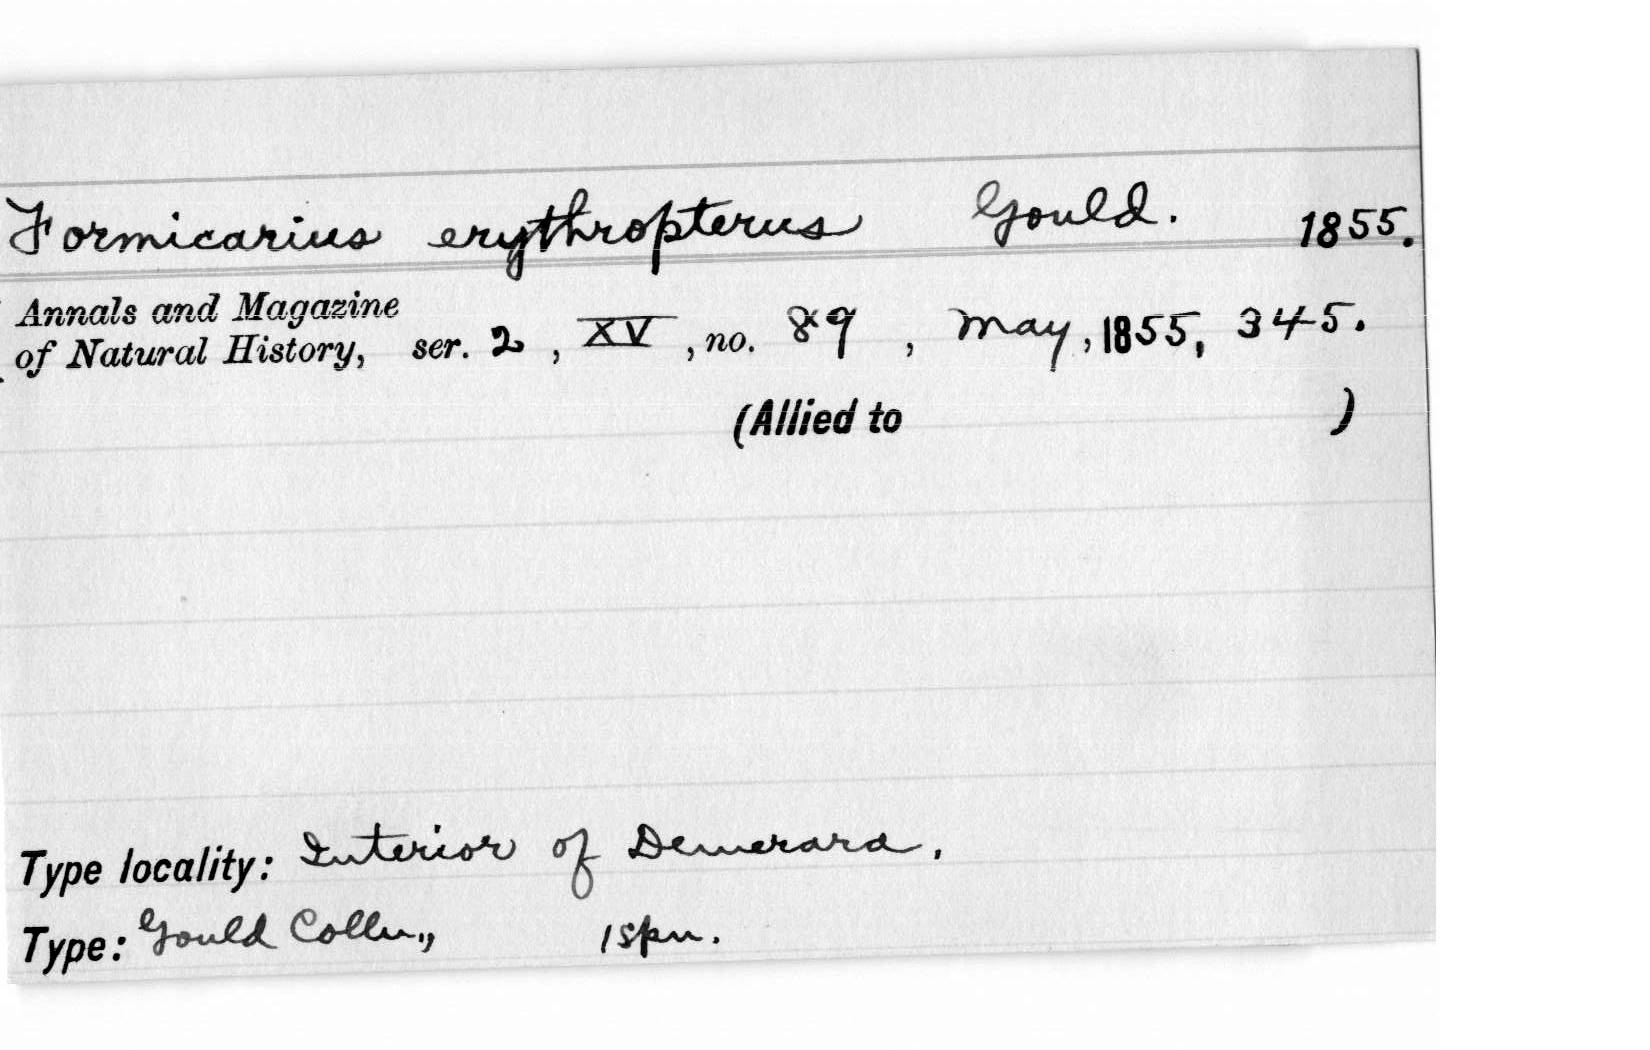 Formicarius erythropterus Gould. 1855.
Annals and Magazine
of Natural History, ser. 2, XV, no. 89, May, 1855, 345.
(Allied to )
Type locality: Interior of Demerara.
Type: Gould Colln., 1 spn.